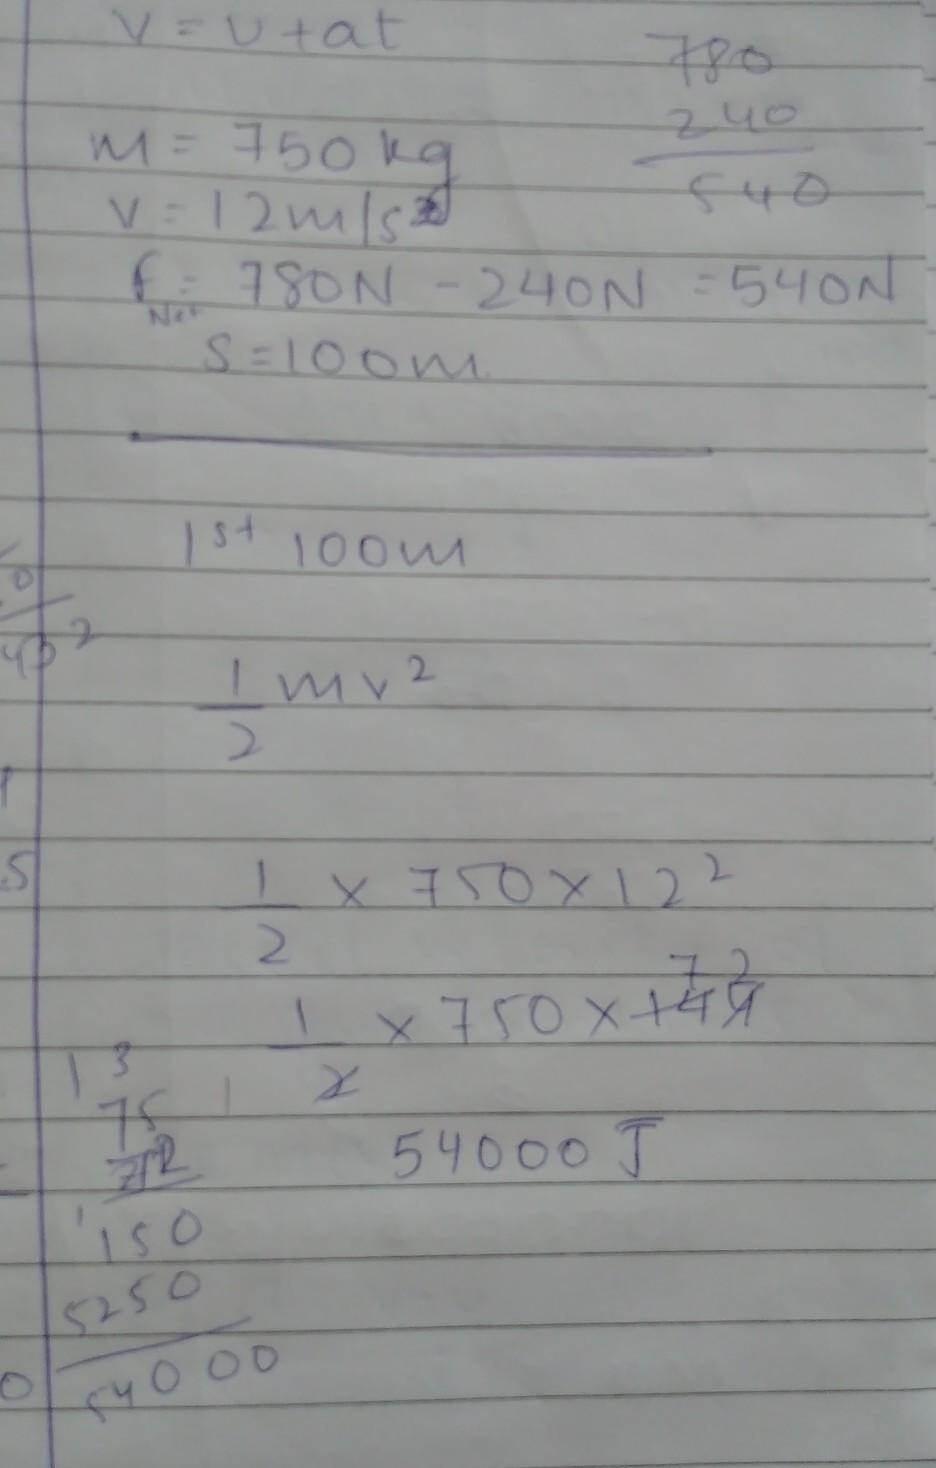 v = u + at
780
240
540
m = 750 kg
v = 12 m/s
f Net = 780N - 240N = 540N
S = 100m
1st 100m
0
2
1/2 mv²
5
1/2 × 750 × 12²
72
1/2 × 750 × 144
1 3
75
72
54000 J
1
150
5250
0
54000